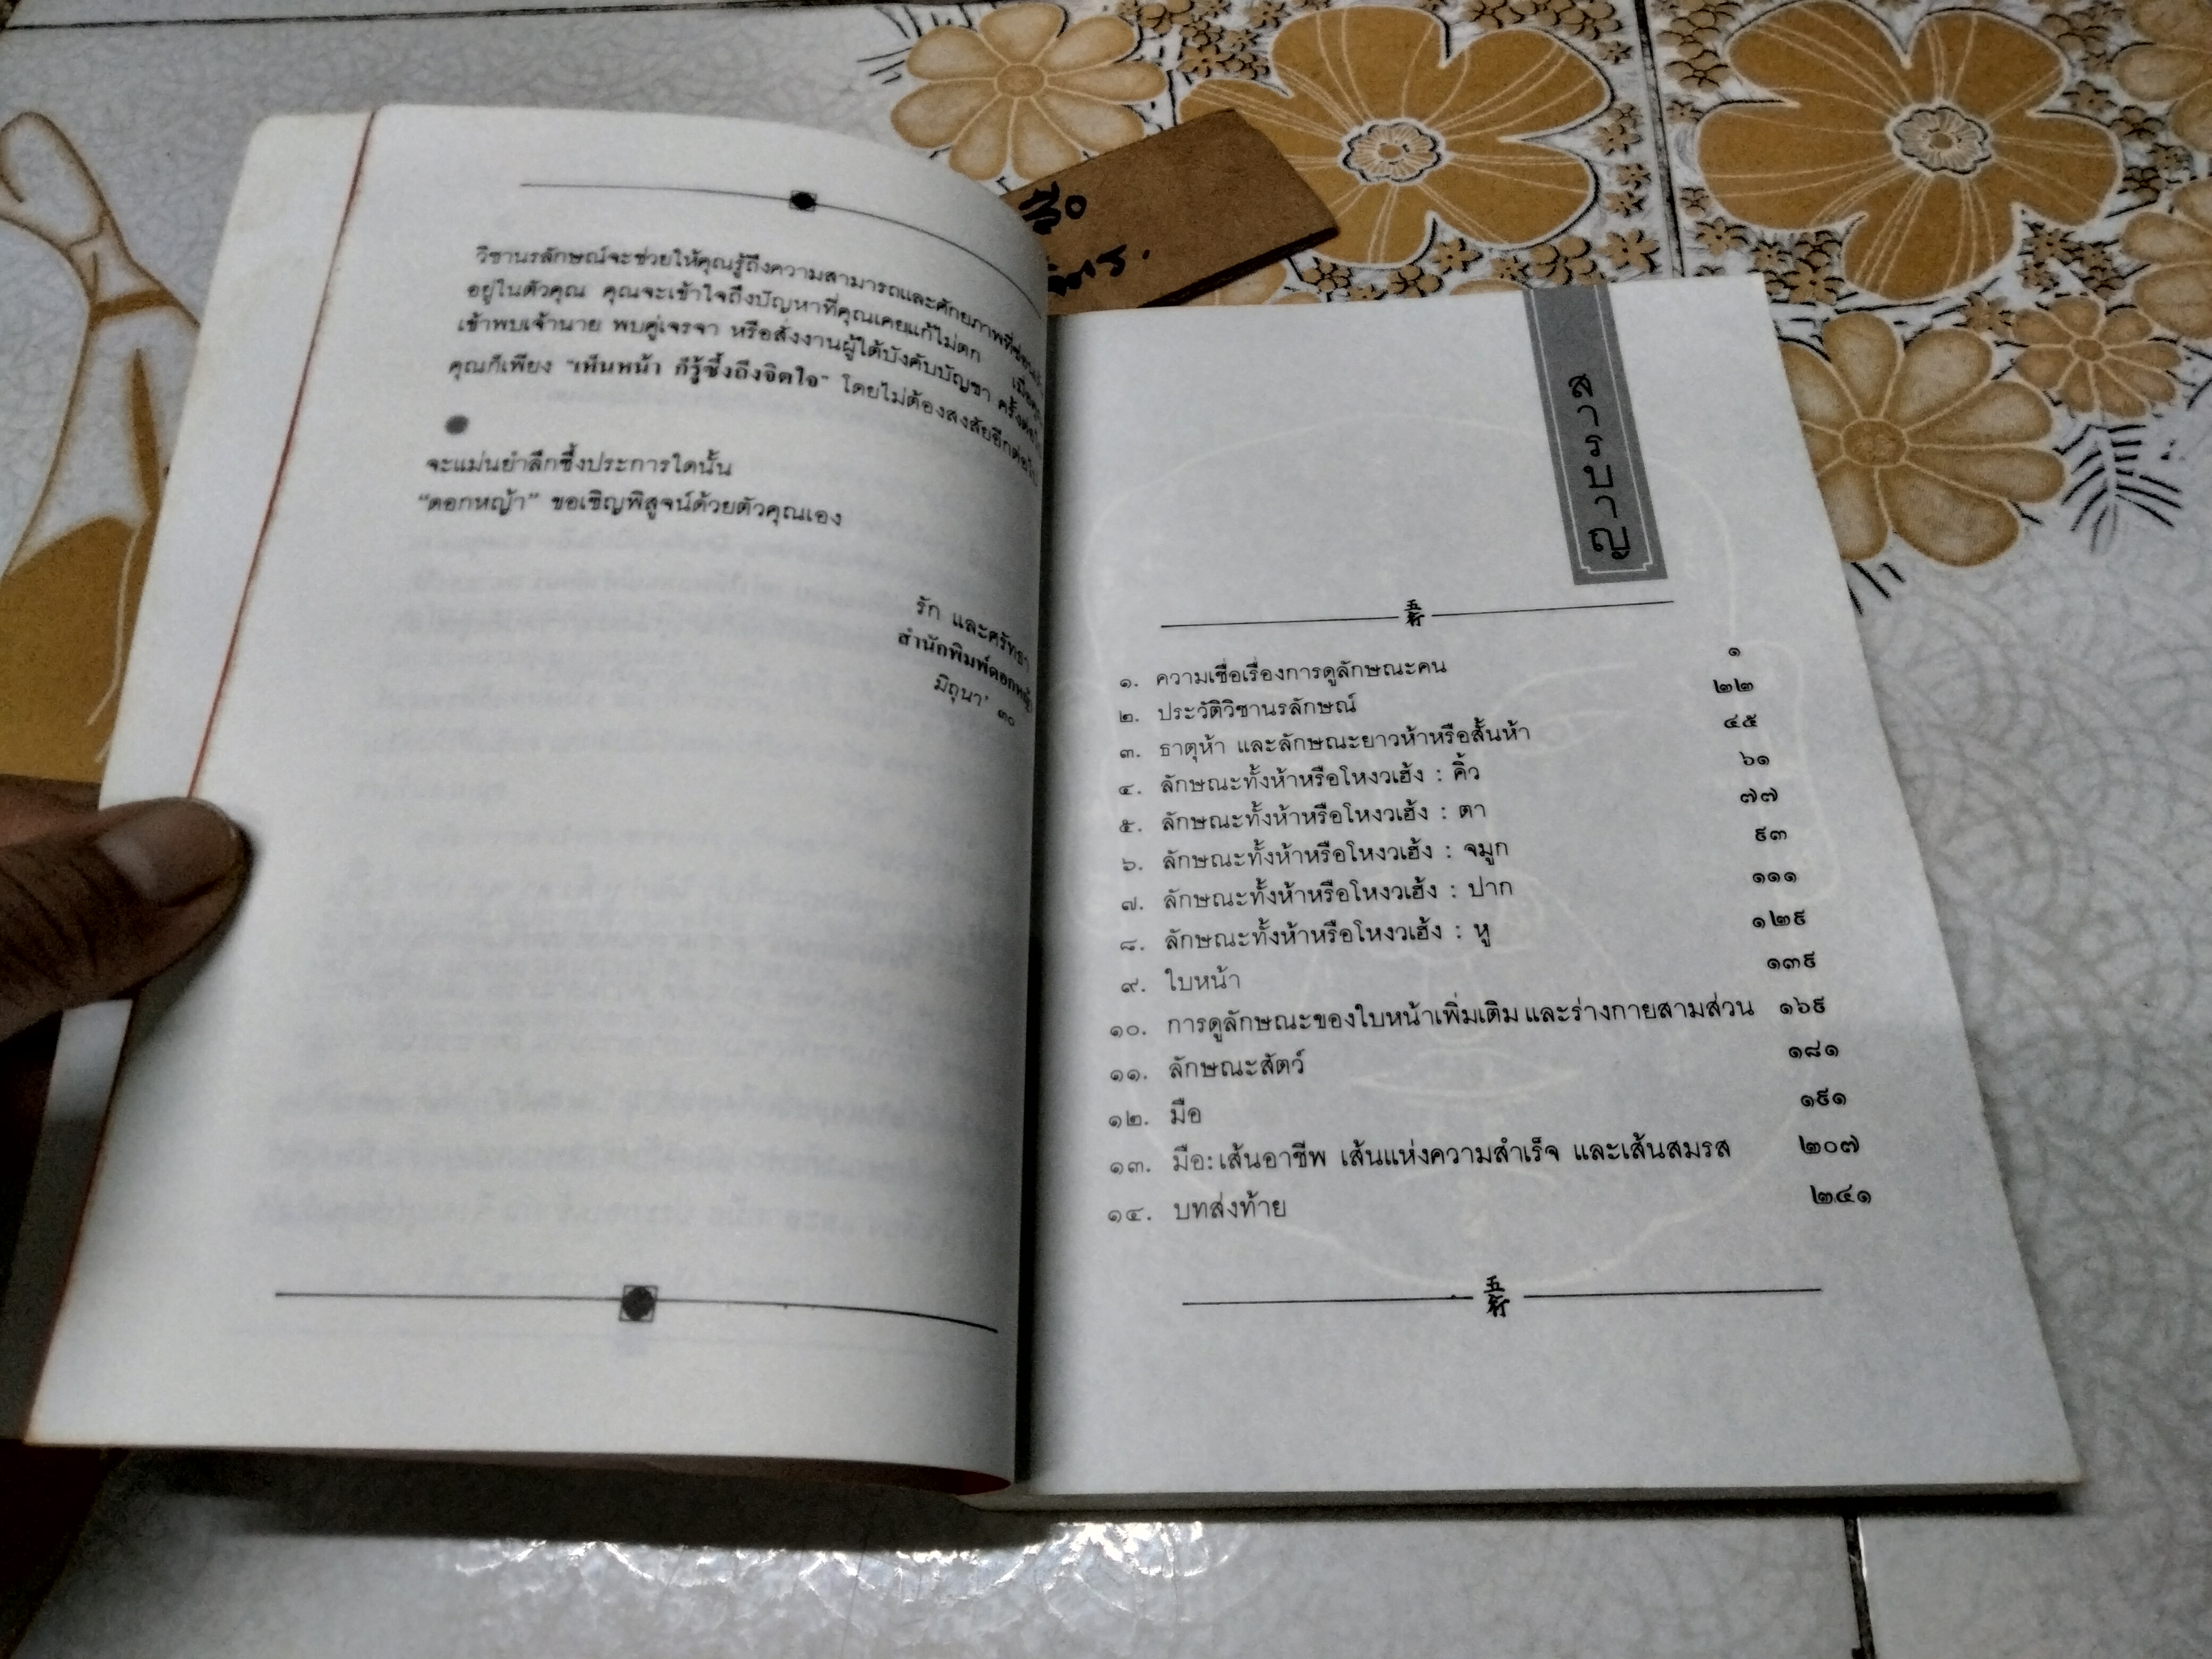 วิชานรลักษณ์จะช่วยให้คุณรู้ถึงความสามารถและศักยภาพที่ซ่อนเร้น
อยู่ในตัวคุณ คุณจะเข้าใจถึงปัญหาที่คุณเคยแก้ไม่ตก
เข้าพบเจ้านาย พบคู่เจรจา หรือสั่งงานผู้ใต้บังคับบัญชา ครั้งต่อไป
คุณก็เพียง "เห็นหน้า ก็รู้ซึ้งถึงจิตใจ" โดยไม่ต้องสงสัยอีกต่อไป
จะแม่นยำลึกซึ้งประการใดนั้น
"ดอกหญ้า" ขอเชิญพิสูจน์ด้วยตัวคุณเอง
รัก และศรัทธา
สำนักพิมพ์ดอกหญ้า
มิถุนา' ๓๐
สารบาญ
五行
๑. ความเชื่อเรื่องการดูลักษณะคน ๑
๒. ประวัติวิชานรลักษณ์ ๒๒
๓. ธาตุห้า และลักษณะยาวห้าหรือสั้นห้า ๔๕
๔. ลักษณะทั้งห้าหรือโหงวเฮ้ง : คิ้ว ๖๑
๕. ลักษณะทั้งห้าหรือโหงวเฮ้ง : ตา ๗๗
๖. ลักษณะทั้งห้าหรือโหงวเฮ้ง : จมูก ๙๓
๗. ลักษณะทั้งห้าหรือโหงวเฮ้ง : ปาก ๑๑๑
๘. ลักษณะทั้งห้าหรือโหงวเฮ้ง : หู ๑๒๙
๙. ใบหน้า ๑๓๙
๑๐. การดูลักษณะของใบหน้าเพิ่มเติม และร่างกายสามส่วน ๑๖๙
๑๑. ลักษณะสัตว์ ๑๘๑
๑๒. มือ ๑๙๑
๑๓. มือ: เส้นอาชีพ เส้นแห่งความสำเร็จ และเส้นสมรส ๒๐๗
๑๔. บทส่งท้าย ๒๔๑
五行